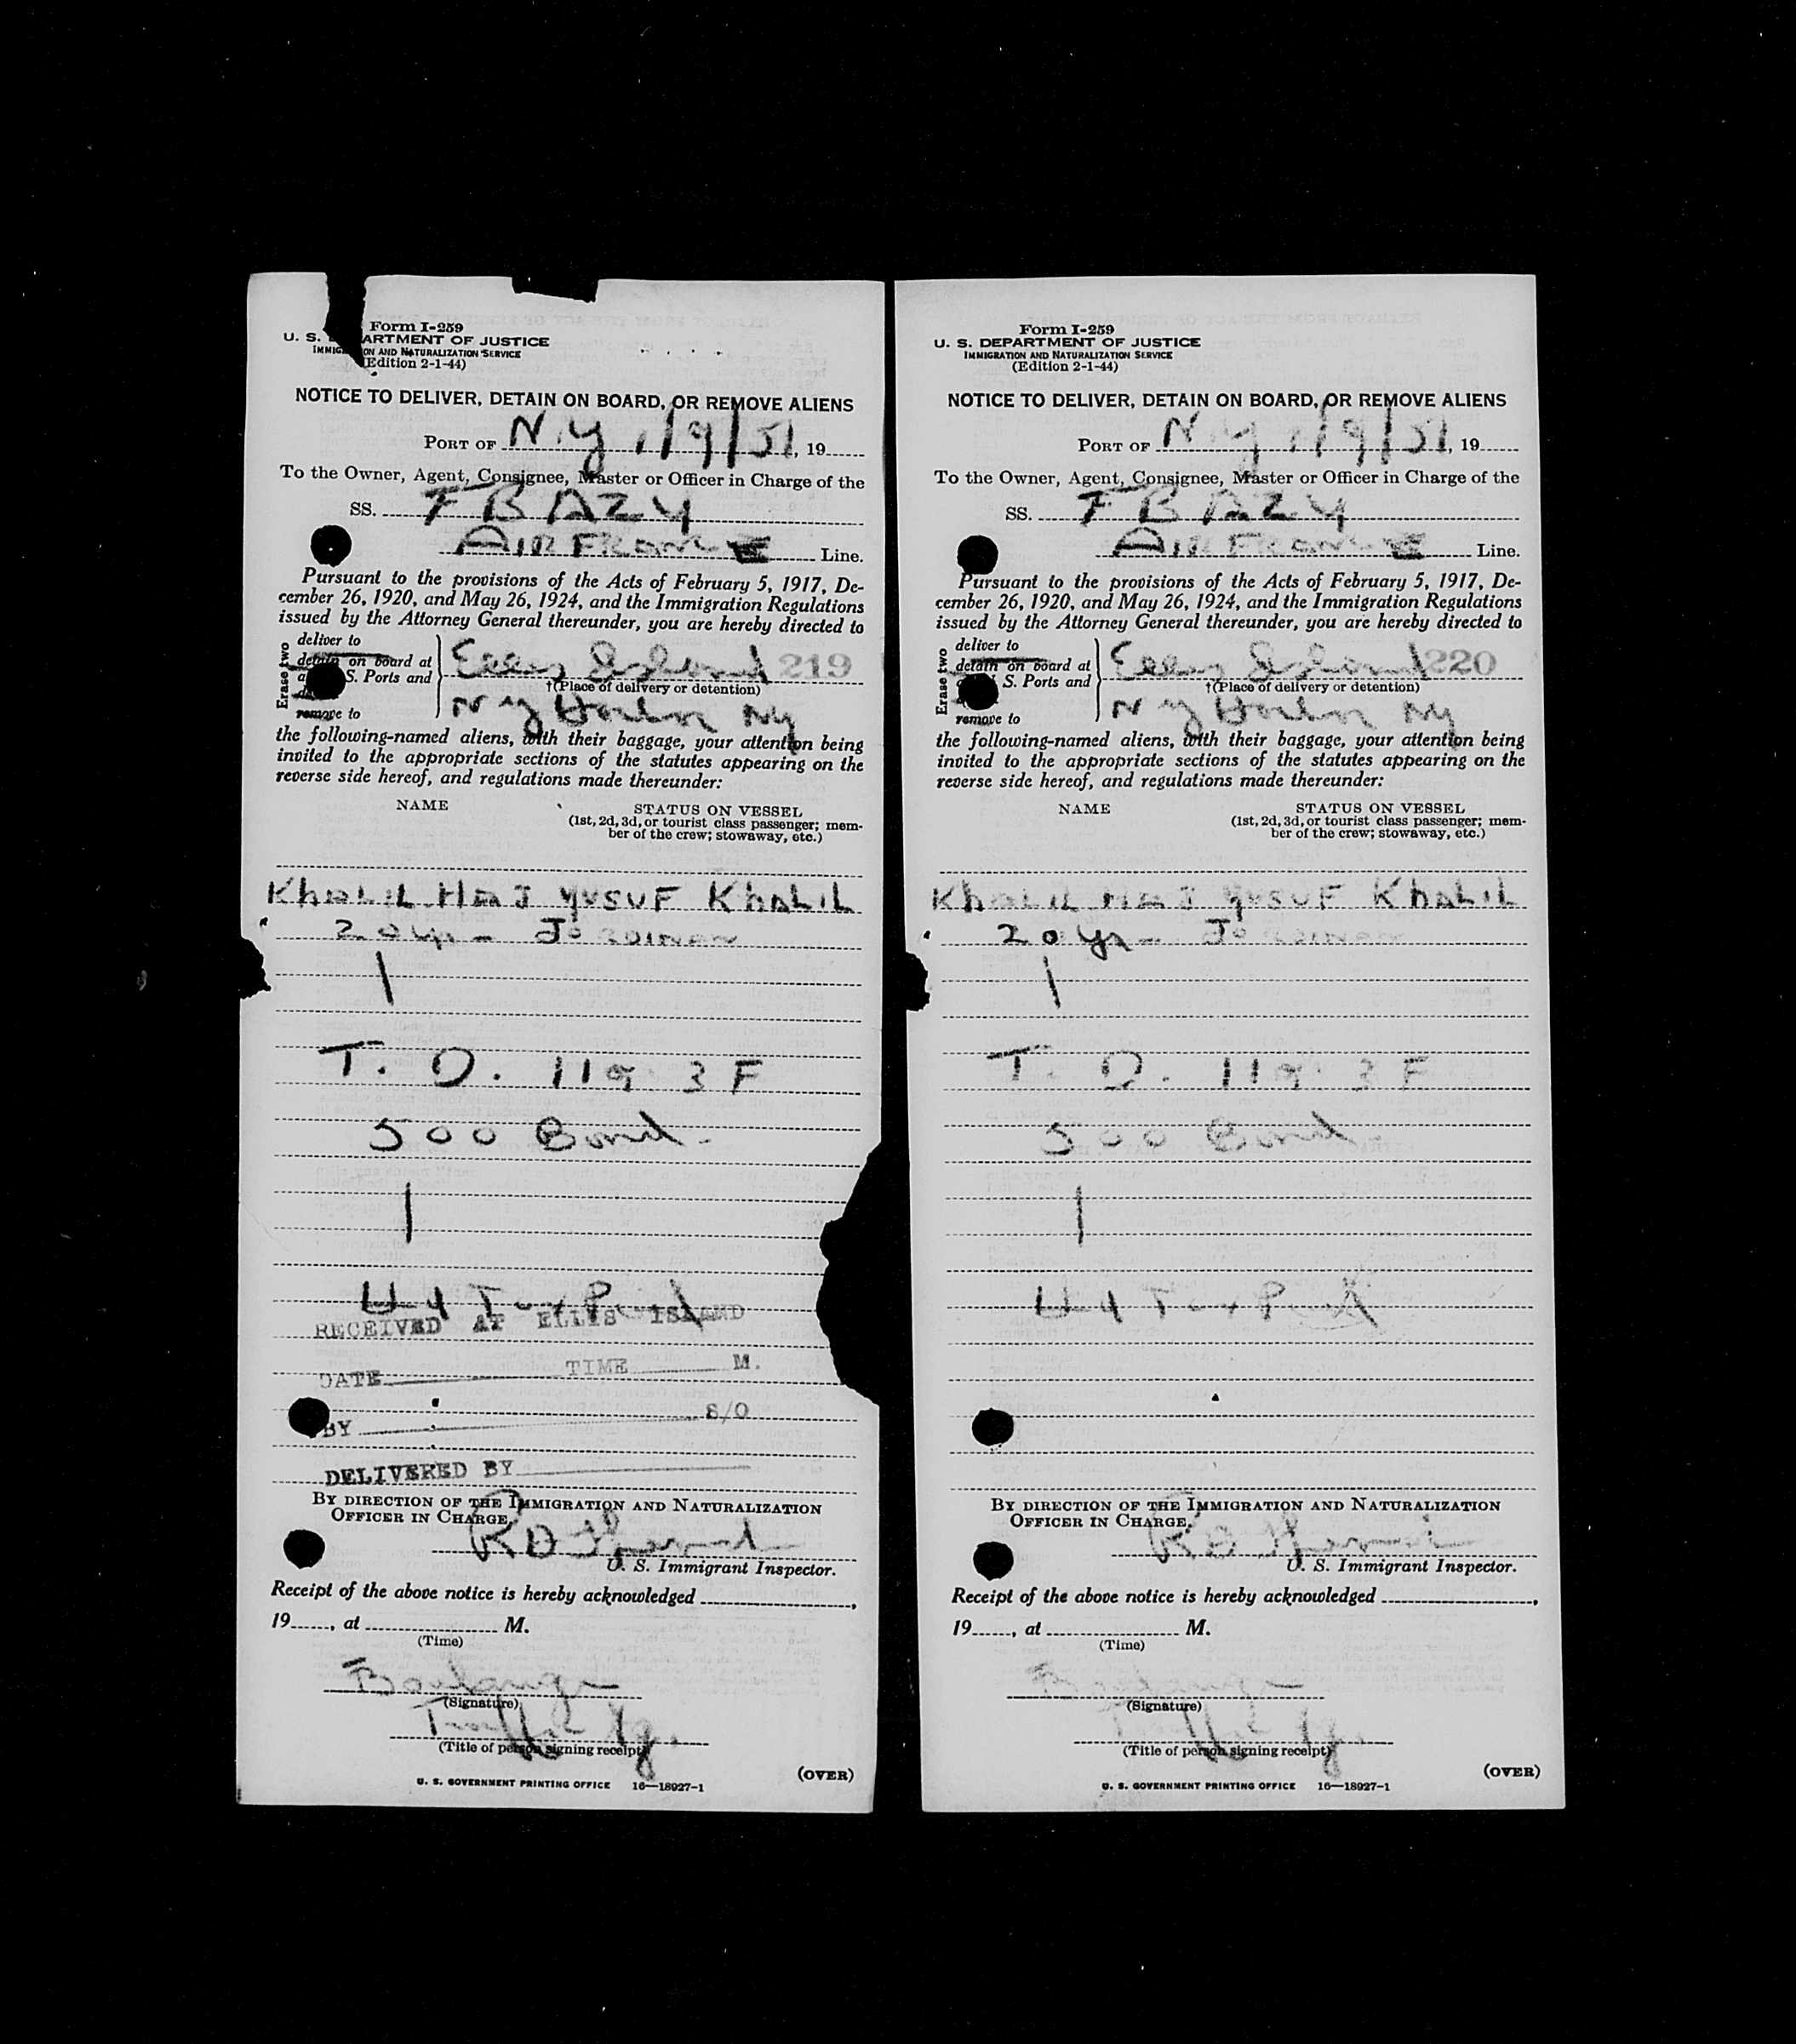 Form I-259
U. S. DEPARTMENT OF JUSTICE
IMMIGRATION AND NATURALIZATION SERVICE
(Edition 2-1-44)
NOTICE TO DELIVER, DETAIN ON BOARD, OR REMOVE ALIENS
PORT OF N.Y 1/9/51, 19
To the Owner, Agent, Consignee, Master or Officer in Charge of the
SS. F BAZY
AIR FRANCE Line.
Pursuant to the provisions of the Acts of February 5, 1917, De-
cember 26, 1920, and May 26, 1924, and the Immigration Regulations
issued by the Attorney General thereunder, you are hereby directed to
Erase two
deliver to
detain on board at
S. Ports and
remove to
Ellis Island 219
†(Place of delivery or detention)
N Y Harbor NY
the following-named aliens, with their baggage, your attention being
invited to the appropriate sections of the statutes appearing on the
reverse side hereof, and regulations made thereunder:
NAME
STATUS ON VESSEL
(1st, 2d, 3d, or tourist class passenger; mem-
ber of the crew; stowaway, etc.)
KhALIL HAJ YUSUF KhALIL
20 yr - Jordinan
1
T. D. 119 3F
500 Bond.
1
RECEIVED AT ELLIS ISLAND
DATE TIME M.
BY S/O
DELIVERED BY
BY DIRECTION OF THE IMMIGRATION AND NATURALIZATION
OFFICER IN CHARGE,
U. S. Immigrant Inspector.
Receipt of the above notice is hereby acknowledged ,
19 , at M.
(Time)
Boulanger
(Signature)
Traffic
(Title of person signing receipt)
(OVER)
U. S. GOVERNMENT PRINTING OFFICE 16—18927-1
Form I-259
U. S. DEPARTMENT OF JUSTICE
IMMIGRATION AND NATURALIZATION SERVICE
(Edition 2-1-44)
NOTICE TO DELIVER, DETAIN ON BOARD, OR REMOVE ALIENS
PORT OF N.Y 1/9/51, 19
To the Owner, Agent, Consignee, Master or Officer in Charge of the
SS. F BAZY
AIR FRANCE Line.
Pursuant to the provisions of the Acts of February 5, 1917, De-
cember 26, 1920, and May 26, 1924, and the Immigration Regulations
issued by the Attorney General thereunder, you are hereby directed to
Erase two
deliver to
detain on board at
S. Ports and
remove to
Ellis Island 220
†(Place of delivery or detention)
N Y Harbor NY
the following-named aliens, with their baggage, your attention being
invited to the appropriate sections of the statutes appearing on the
reverse side hereof, and regulations made thereunder:
NAME
STATUS ON VESSEL
(1st, 2d, 3d, or tourist class passenger; mem-
ber of the crew; stowaway, etc.)
KhALIL HAJ YUSUF KhALIL
20 yr - Jordinan
1
T. D. 119 3F
500 Bond.
1
BY DIRECTION OF THE IMMIGRATION AND NATURALIZATION
OFFICER IN CHARGE,
U. S. Immigrant Inspector.
Receipt of the above notice is hereby acknowledged ,
19 , at M.
(Time)
Boulanger
(Signature)
Traffic
(Title of person signing receipt)
(OVER)
U. S. GOVERNMENT PRINTING OFFICE 16—18927-1